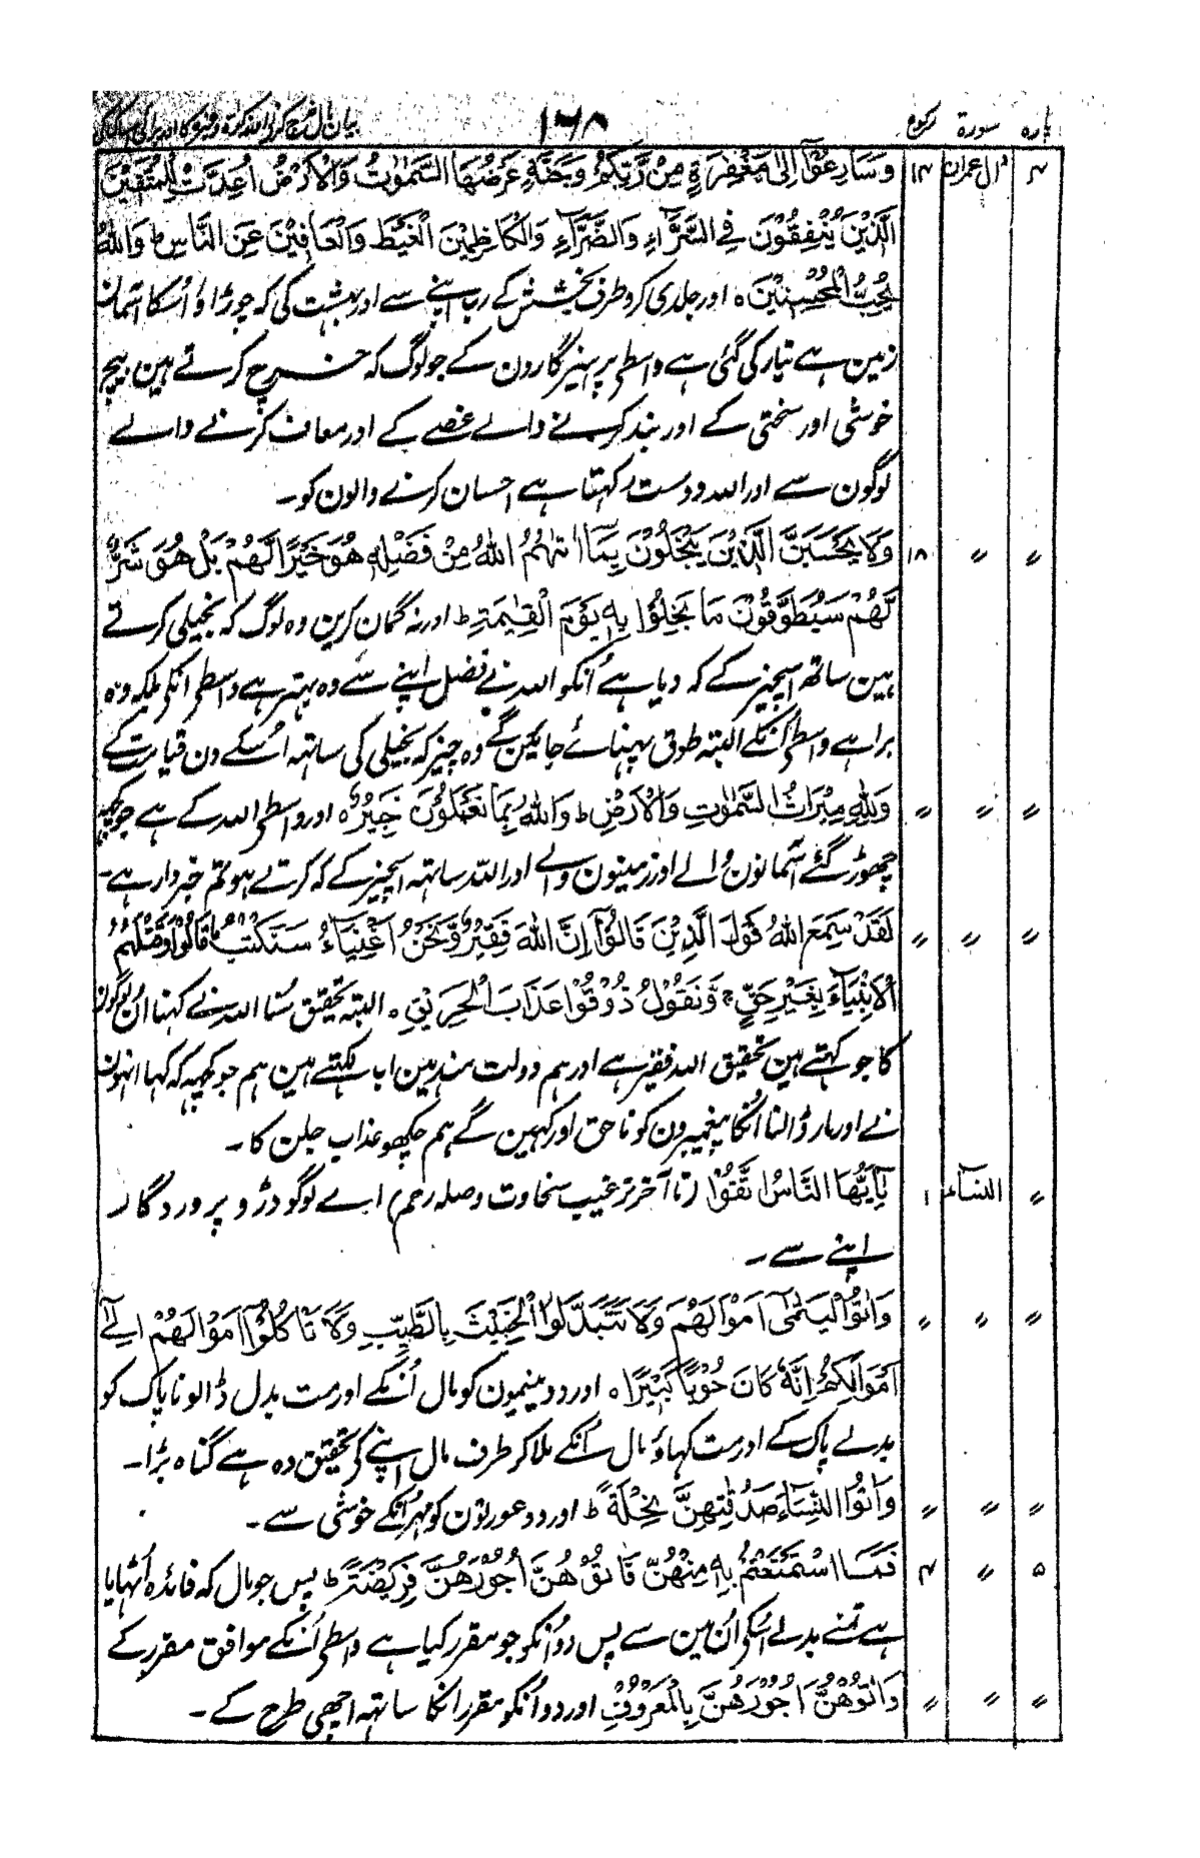 پارہ سورۃ رکوع ۱۶۸ بیان
۴ اٰل عمران ۱۴ وَسَارِعُوْٓا اِلٰی مَغْفِرَةٍ مِّنْ رَّبِّكُمْ وَجَنَّةٍ عَرْضُهَا السَّمٰوٰتُ وَالْاَرْضُ اُعِدَّتْ لِلْمُتَّقِيْنَ
الَّذِيْنَ يُنْفِقُوْنَ فِي السَّرَّآءِ وَالضَّرَّآءِ وَالْكَاظِمِيْنَ الْغَيْظَ وَالْعَافِيْنَ عَنِ النَّاسِ ط وَاللّٰهُ
يُحِبُّ الْمُحْسِنِيْنَ ہ اور جلدی کرو طرف بخشش کے رب اپنے سے اور بہشت کی کہ چوڑاؤ اُسکا آسمان
زمین ہے تیار کی گئی ہے واسطی پرہیزگارون کے جو لوگ کہ خرچ کرتے ہین بیچ
خوشی اور سختی کے اور بند کرنے والے غصے کے اور معاف کرنے والے
لوگون سے اور اللہ دوست رکہتا ہے احسان کرنے والون کو۔
〃 〃 ۱۸ وَلَا يَحْسَبَنَّ الَّذِيْنَ يَبْخَلُوْنَ بِمَا اٰتٰهُمُ اللّٰهُ مِنْ فَضْلِهٖ هُوَ خَيْرًا لَّهُمْ بَلْ هُوَ شَرٌّ
لَّهُمْ سَيُطَوَّقُوْنَ مَا بَخِلُوْا بِهٖ يَوْمَ الْقِيٰمَةِ ط اور نہ گمان کرین وہ لوگ کہ بخیلی کرتے
ہین ساتھ اسچیز کے کہ دیا ہے اُنکو اللہ نے فضل اپنے سے وہ بہتر ہے واسطی انکی بلکہ وہ
برا ہے واسطی اُنکے البتہ طوق پہنائے جائینگے وہ چیز کہ بخیلی کی ساتہہ اُسکے دن قیامت کے
〃 〃 〃 وَلِلّٰهِ مِيْرَاثُ السَّمٰوٰتِ وَالْاَرْضِ ط وَاللّٰهُ بِمَا تَعْمَلُوْنَ خَبِيْرٌ ہ اور واسطی اللہ کے ہے جو کچہہ
چھوڑ گئے آسمانون والے اور زمینون والے اور اللہ ساتہہ اسچیز کے کہ کرتے ہو تم خبردار ہے۔
〃 〃 〃 لَقَدْ سَمِعَ اللّٰهُ قَوْلَ الَّذِيْنَ قَالُوْٓا اِنَّ اللّٰهَ فَقِيْرٌ وَّنَحْنُ اَغْنِيَآءُ سَنَكْتُبُ مَا قَالُوْا وَقَتْلَهُمُ
الْاَنْۢبِيَآءَ بِغَيْرِ حَقٍّ وَّنَقُوْلُ ذُوْقُوْا عَذَابَ الْحَرِيْقِ ہ البتہ تحقیق سُنا اللہ نے کہنا اُن لوگون
کا جو کہتے ہین تحقیق اللہ فقیر ہے اور ہم دولت مند ہین اب لکہتے ہین ہم جو کچہہ کہ کہا انہون
نے اور مار ڈالنا اُنکا پیغمبرون کو ناحق اور کہین گے ہم چکھو عذاب جلن کا۔
〃 النسآء ۱ يٰٓاَيُّهَا النَّاسُ اتَّقُوْا (تا آخر ترغیب سخاوت وصلہ رحم) اے لوگو ڈرو پروردگار
اپنے سے۔
〃 〃 〃 وَاٰتُوا الْيَتٰمٰٓى اَمْوَالَهُمْ وَلَا تَتَبَدَّلُوا الْخَبِيْثَ بِالطَّيِّبِ وَلَا تَأْكُلُوْٓا اَمْوَالَهُمْ اِلٰٓى
اَمْوَالِكُمْ اِنَّهٗ كَانَ حُوْبًا كَبِيْرًا ہ اور دو یتیمون کو مال اُنکے اور مت بدل ڈالو ناپاک کو
بدلے پاک کے اور مت کہاؤ مال اُنکے ملا کر طرف مال اپنے کی تحقیق وہ ہے گناہ بڑا۔
〃 〃 〃 وَاٰتُوا النِّسَآءَ صَدُقٰتِهِنَّ نِحْلَةً ط اور دو عورتون کو مہر اُنکے خوشی سے۔
۵ 〃 ۴ فَمَا اسْتَمْتَعْتُمْ بِهٖ مِنْهُنَّ فَاٰتُوْهُنَّ اُجُوْرَهُنَّ فَرِيْضَةً ط پس جو مال کہ فائدہ اُٹہایا
ہے تمنے بدلے اسکی اُن مین سے پس دو اُنکو جو مقرر کیا ہے واسطی اُنکے موافق مقرر کے
〃 〃 〃 وَاٰتُوْهُنَّ اُجُوْرَهُنَّ بِالْمَعْرُوْفِ اور دو اُنکو مقرر انکا ساتہہ اچھی طرح کے۔